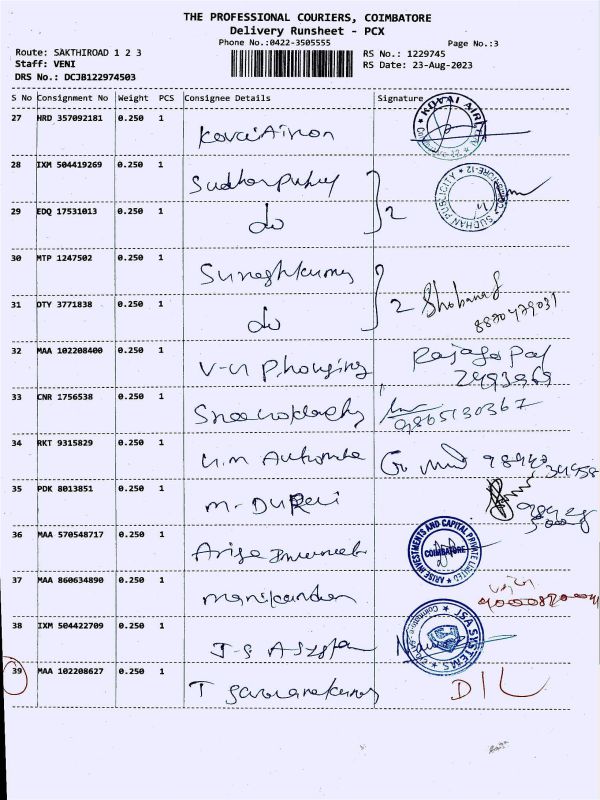 THE PROFESSIONAL COURIERS, COIMBATORE
Delivery Runsheet - PCX
Phone No.:0422-3505555
Page No.:3
Route: SAKTHIROAD 1 2 3
RS No.: 1229745
Staff: VENI
RS Date: 23-Aug-2023
DRS No.: DCJB122974503
S No Consignment No Weight PCS Consignee Details Signature
27 HRD 357092181 0.250 1
KOVAI AIRLEN
28 IXM 504419269 0.250 1
SUDHAN PUBLICITY
29 EDQ 17531013 0.250 1 do 2
30 MTP 1247502 0.250 1 Sureshkumar
31 DTY 3771838 0.250 1 do 2 Shobana
32 MAA 102208400 0.250 1 Rajagopal
2493969
33 CNR 1756538 0.250 1 9865130367
34 RKT 9315829 0.250 1
35 PDK 8013851 0.250 1
36 MAA 570548717 0.250 1 Arise
ARISE INVESTMENTS AND CAPITAL PRIVATE LIMITED
COIMBATORE
37 MAA 860634890 0.250 1 Manikandan
38 IXM 504422709 0.250 1
JSA SYSTEMS
39 MAA 102208627 0.250 1 T Saravanakumar DIL